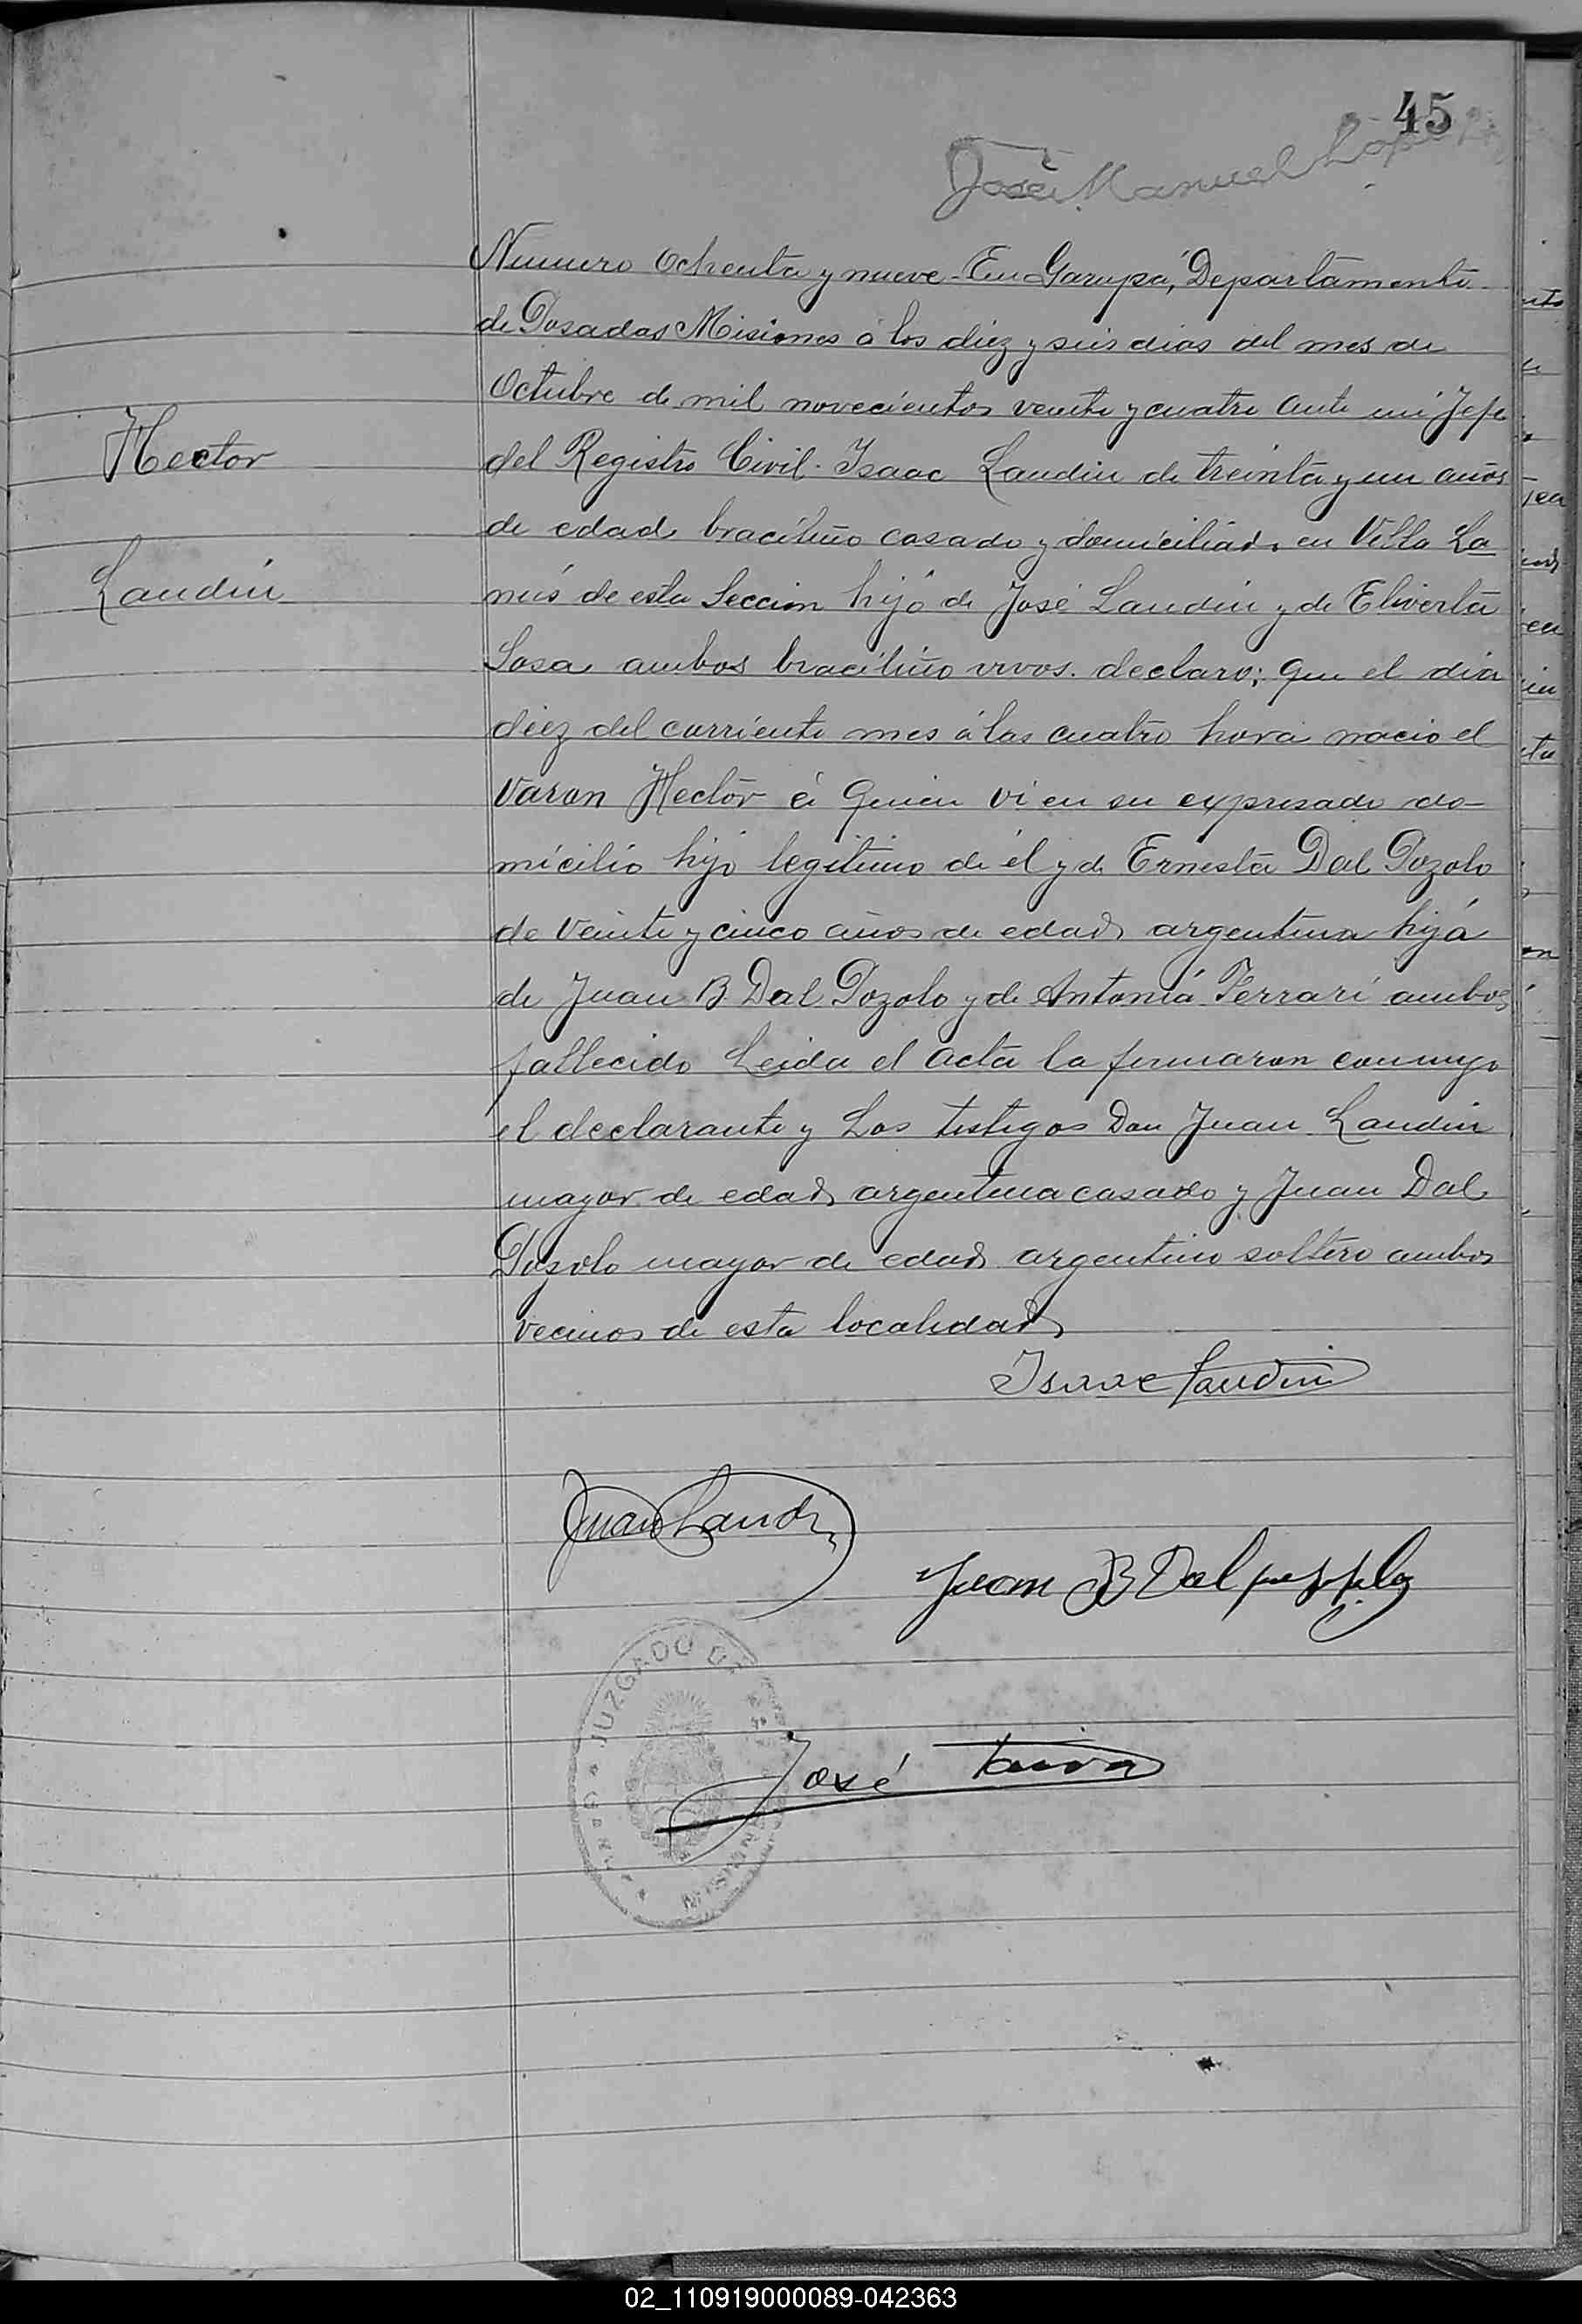 45
José Manuel Lopez
Numero Ochenta y nueve En Garupá, Departamento
de Posadas Misiones á los diez y seis dias del mes de
Octubre de mil novecientos veinte y cuatro ante mi Jefe
Hector
del Registro Civil. Isaac Landin de treinta y un años
de edad braciliño casado y domiciliado en Villa La
Landin
nús de esta Seccion hijo de José Landin y de Eliverta
Sosa ambos braciliño vivos. declaro; que el dia
diez del corriente mes á las cuatro hora nacio el
varon Hector á quien vi en su expresado do-
micilio hijo legitimo de él y de Ernesta Dal Pozolo
de veinte y cinco años de edad argentina hija
de Juan B. Dal Pozolo y de Antonia Ferrari ambos
fallecido Leida el acta la firmaron conmigo
el declarante y Los testigos Don Juan Landin
mayor de edad argentina casado y Juan Dal
Pozolo mayor de edad argentino soltero ambos
vecinos de esta localidad
Isaac Landin
Juan Landin
Juan B Dal
JUZGADO DE
José
02_110919000089-042363